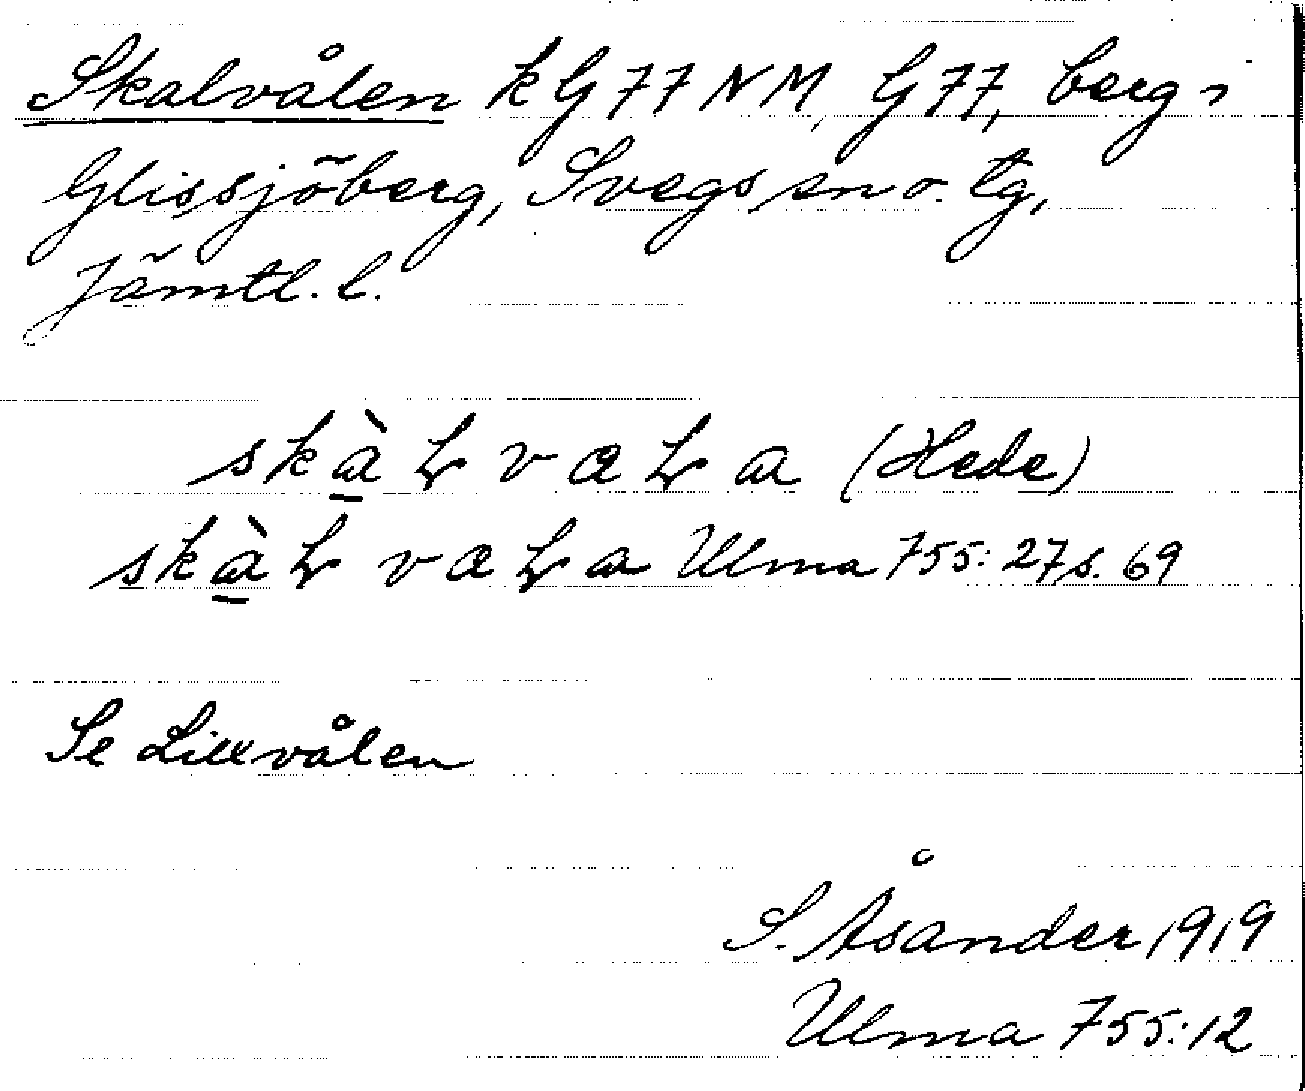 Skalvålen k G 77 NM, G 77, berg i
Glissjöberg, Svegs sn o. tg,
Jämtl. l.
skàⱡ vaⱡa (Hede)
skàⱡ vaⱡa Ulma 755: 27 s. 69
Se Lillvålen
S. Åsander 1919
Ulma 755:12